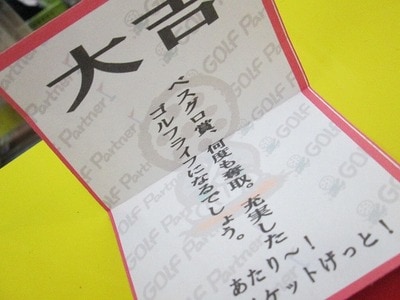 大吉
ベスグロ賞、何度も奪取。充実した
ゴルフライフになるでしょう。
あたり〜！
ケットげっと！
GOLF Partner